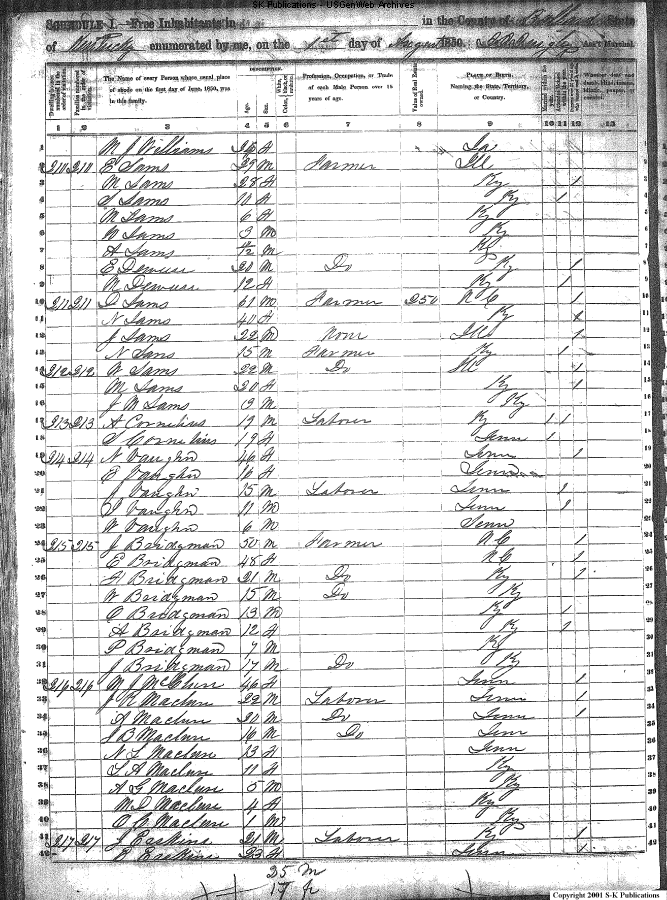 S-K Publications - USGenWeb Archives
SCHEDULE I.—Free Inhabitants in in the County of State
of Kentucky enumerated by me, on the 1st day of August 1850. Ass't Marshal.
DESCRIPTION.
Dwelling-houses numbered in the order of visitation.
Families numbered in the order of visitation.
The Name of every Person whose usual place of abode on the first day of June, 1850, was in this family.
Age.
Sex.
Color, White, black, or mulatto.
Profession, Occupation, or Trade of each Male Person over 15 years of age.
Value of Real Estate owned.
PLACE OF BIRTH. Naming the State, Territory, or Country.
Married within the year.
Whether deaf and dumb, blind, insane, idiotic, pauper, or convict.
1 2 3 4 5 6 7 8 9 10 11 12 13
1 M J Williams 26 f Ia
2 210 210 E Sams 29 M Farmer Ill
3 M Sams 28 f Ky 1
4 S Sams 11 f Ky 1
5 M Sams 6 f Ky
6 W Sams 3 M Ky
7 A Sams 11/12 M Ky
8 E 20 M Do Ky 1
9 M 12 f Ky 1
10 211 211 D Sams 61 M Farmer 250 N C 1
11 N Sams 40 f Ky 1
12 J Sams 22 M None Ills 1
13 N Sams 15 M Farmer Ky 1
14 212 212 W Sams 22 M Do Ill 1
15 M Sams 20 f Ky 1
16 J M Sams 3 M Ky
17 213 213 A Cornelius 19 M Laborer Ky 1 1
18 S Cornelius 19 f Tenn 1
19 214 214 N Vaughn 46 f Tenn 1
20 E Vaughn f Tenn
21 J Vaughn 15 M Laborer Tenn 1
22 S Vaughn 11 M Tenn 1
23 W Vaughn 6 M Tenn
24 215 215 J Bridgman 50 M Farmer N C 1
25 E Bridgman 48 f N C 1
26 H Bridgman 21 M Do Ky 1
27 W Bridgman 15 M Do Ky
28 C Bridgman 13 M Ky 1
29 A Bridgman 12 f Ky 1
30 P Bridgman 7 M Ky
31 J Bridgman 17 M Do Ky
32 216 216 M J 46 f Tenn 1
33 J R Maclure 22 M Laborer Tenn 1
34 A Maclure 20 M Do Tenn 1
35 J B Maclure 16 M Do Tenn
36 N L Maclure 13 f Tenn
37 L A Maclure 11 f Ky
38 A G Maclure 5 M Ky
39 M D Maclure 4 f Ky
40 O C Maclure 1 M Ky
41 217 217 J Erskine 21 M Laborer Ky 1
42 Erskine 23 f Tenn 1
25 M
17 f
Copyright 2001 S-K Publications